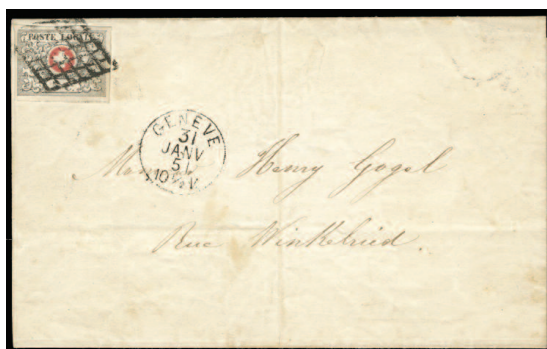 POSTE LOCALE
GENÈVE
31
JANV
51
Henry Gogel
Rue Winkelried.